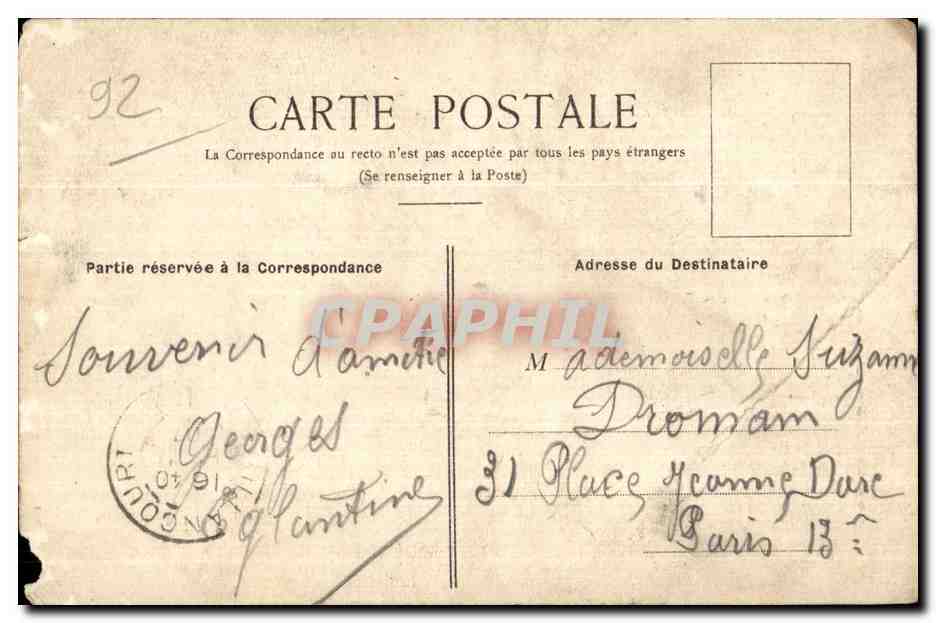 92
CARTE POSTALE
La Correspondance au recto n'est pas acceptée par tous les pays étrangers
(Se renseigner à la Poste)
Partie réservée à la Correspondance
Souvenir d'amitié
Georges
Eglantine
COURT
16
10
Adresse du Destinataire
Mademoiselle Suzanne
Dromain
31 Place Jeanne Darc
Paris 13e
CPAPHIL